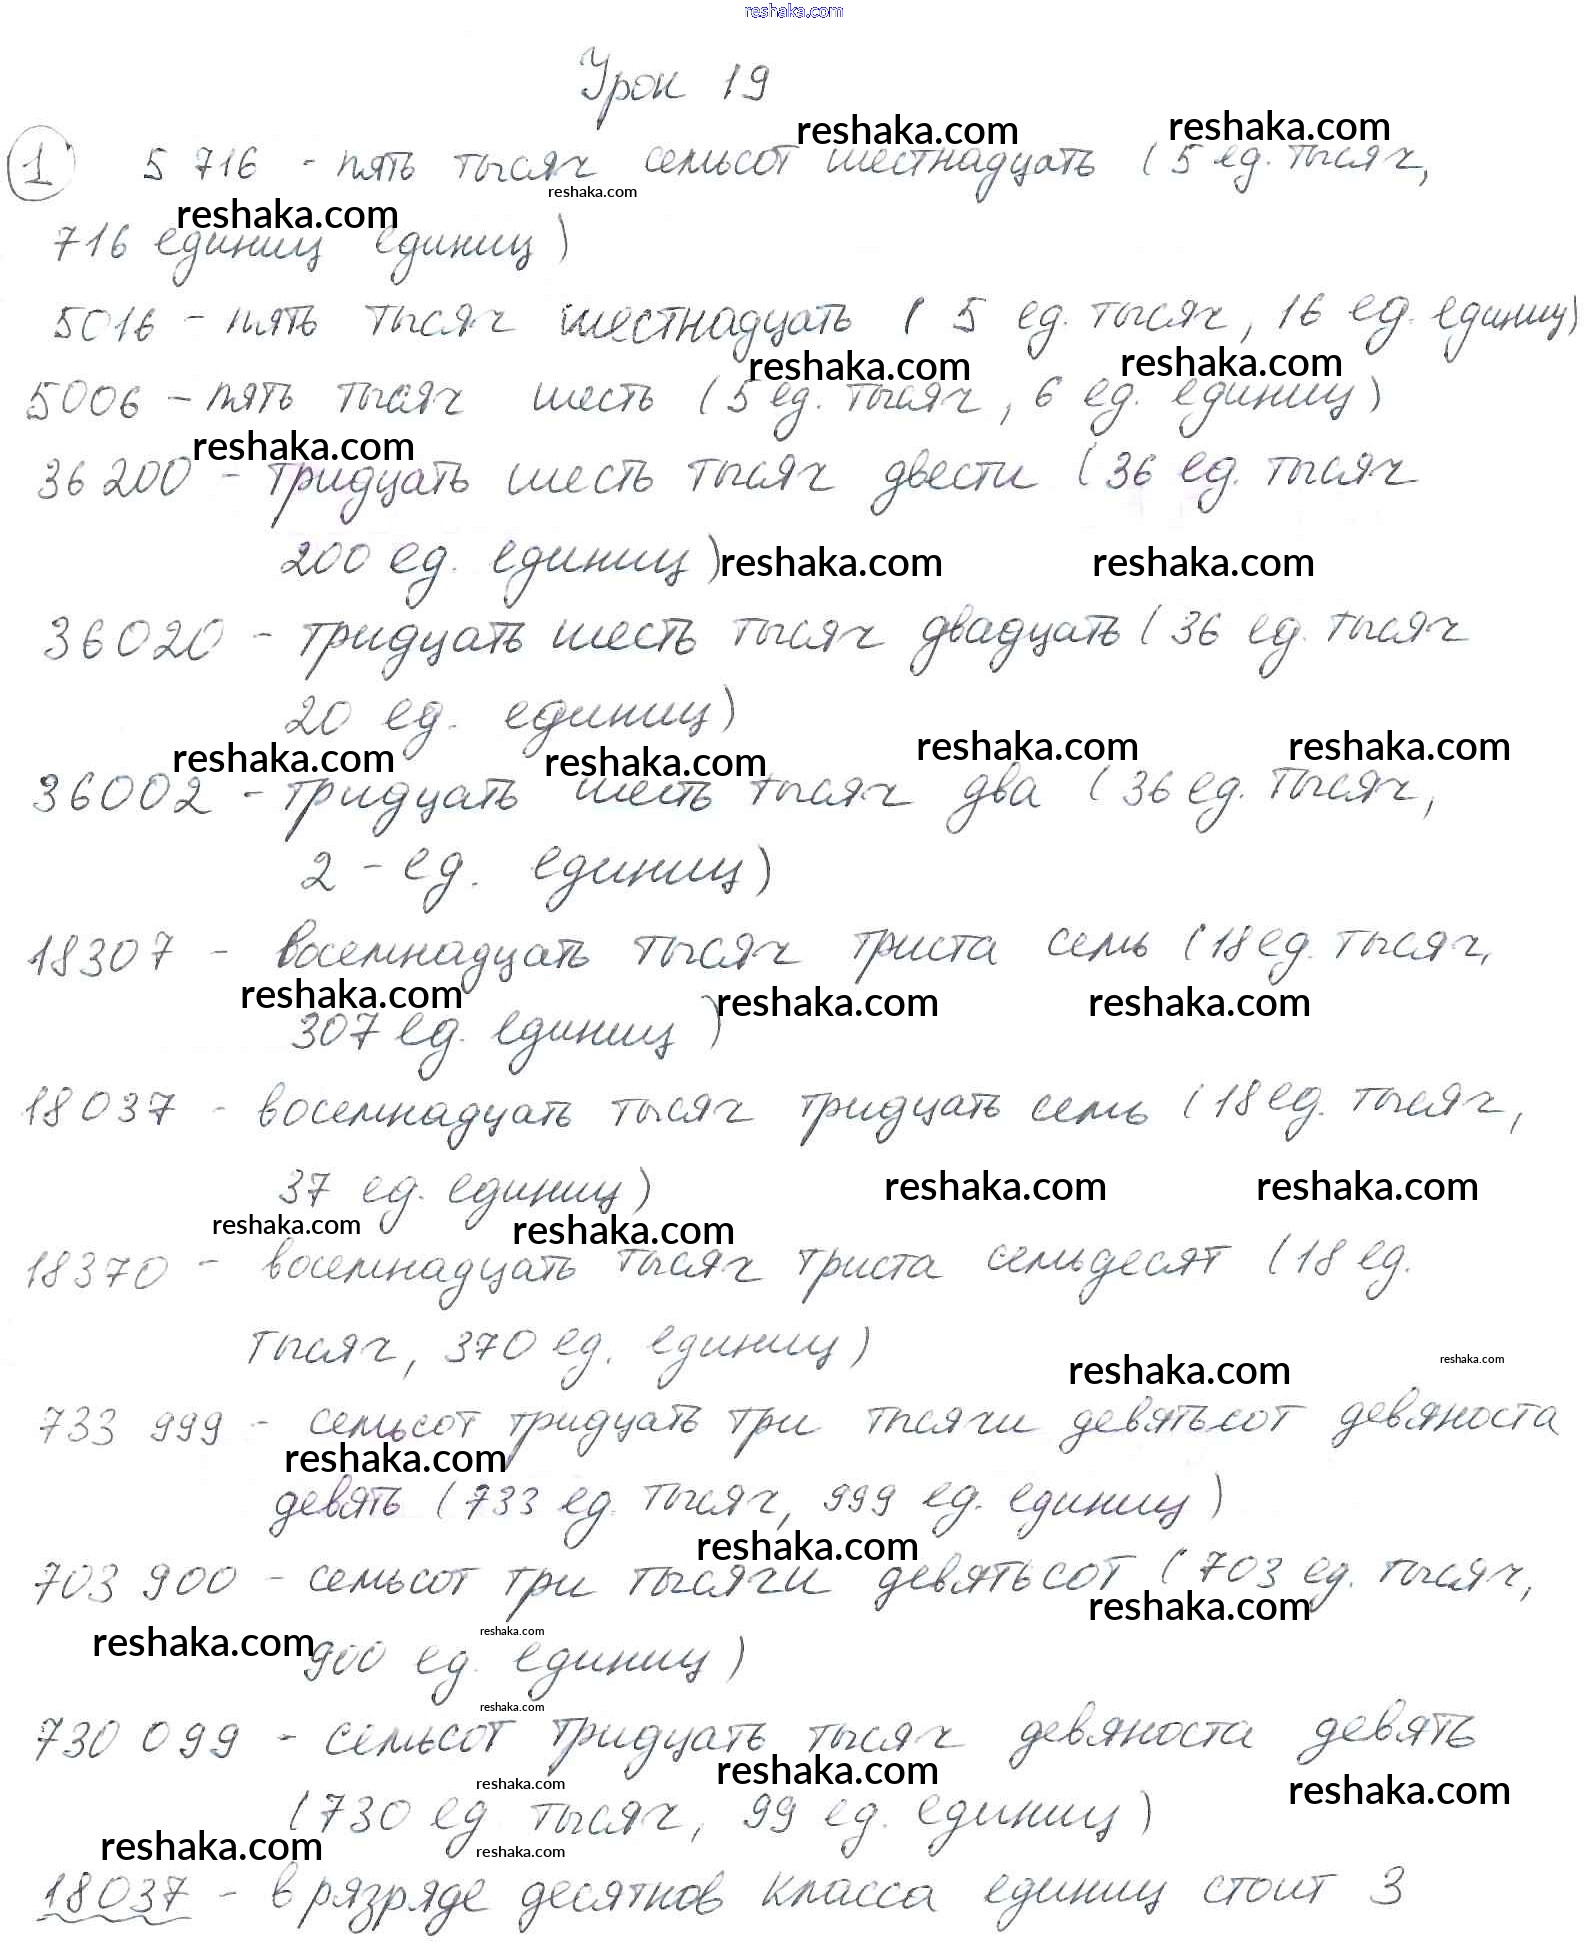 reshaka.com
Урок 19
reshaka.com reshaka.com
1 5 716 - пять тысяч семьсот шестнадцать (5 ед. тысяч,
reshaka.com
reshaka.com
716 единиц единиц)
5016 - пять тысяч шестнадцать (5 ед. тысяч, 16 ед. единиц)
reshaka.com reshaka.com
5006 - пять тысяч шесть (5 ед. тысяч, 6 ед. единиц)
reshaka.com
36 200 - тридцать шесть тысяч двести (36 ед. тысяч
200 ед. единиц) reshaka.com reshaka.com
36020 - тридцать шесть тысяч двадцать (36 ед. тысяч
20 ед. единиц)
reshaka.com reshaka.com reshaka.com reshaka.com
36002 - тридцать шесть тысяч два (36 ед. тысяч,
2 - ед. единиц)
18307 - восемнадцать тысяч триста семь (18 ед. тысяч,
reshaka.com reshaka.com reshaka.com
307 ед. единиц)
18037 - восемнадцать тысяч тридцать семь (18 ед. тысяч,
37 ед. единиц) reshaka.com reshaka.com
reshaka.com reshaka.com
18370 - восемнадцать тысяч триста семьдесят (18 ед.
тысяч, 370 ед. единиц)
reshaka.com reshaka.com
733 999 - семьсот тридцать три тысячи девятьсот девяноста
reshaka.com
девять (733 ед. тысяч, 999 ед. единиц)
reshaka.com
703 900 - семьсот три тысячи девятьсот (703 ед. тысяч,
reshaka.com
reshaka.com reshaka.com
900 ед. единиц)
reshaka.com
730 099 - семьсот тридцать тысяч девяноста девять
reshaka.com reshaka.com reshaka.com
(730 ед тысяч, 99 ед. единиц)
reshaka.com reshaka.com
18037 - в рязряде десятков класса единиц стоит 3